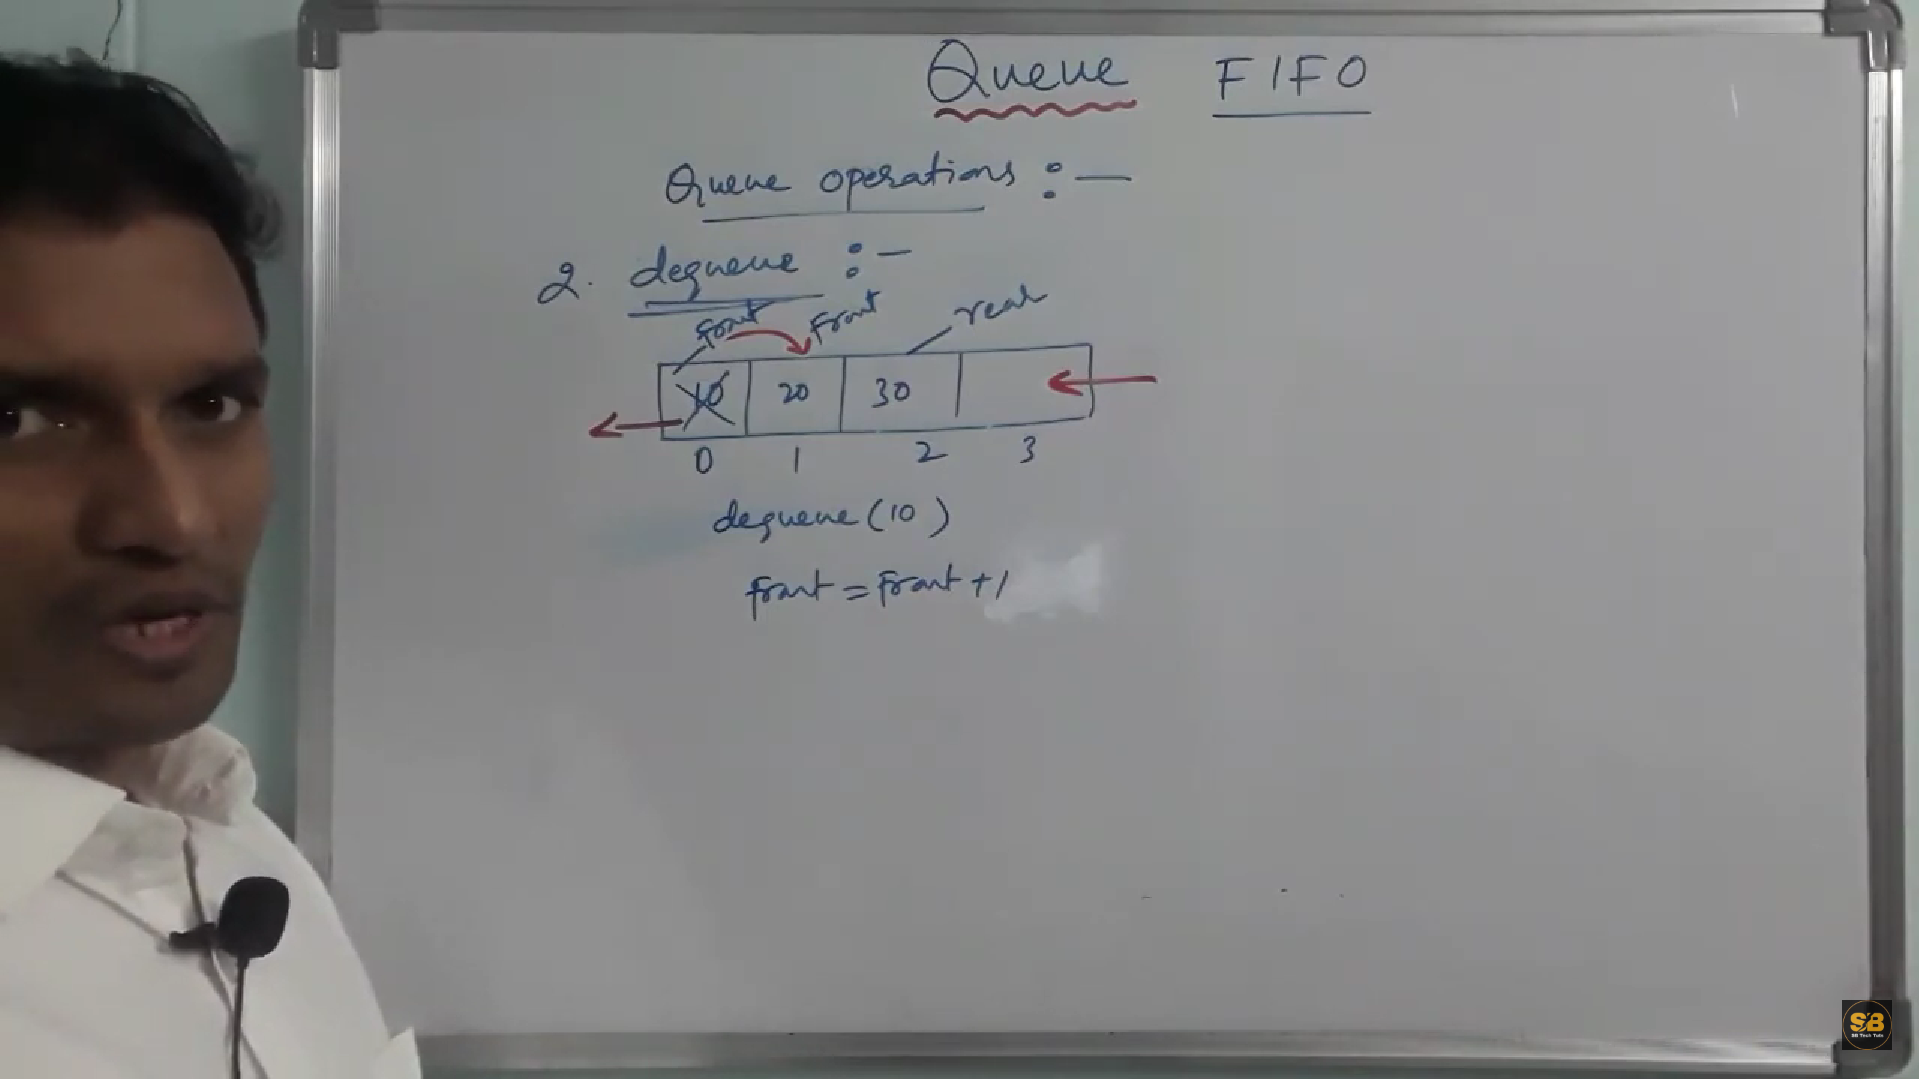 Queue FIFO
Queue operations :—
2. dequeue :—
Front Front rear
10 20 30
0 1 2 3
dequeue (10)
Front = Front + 1
SB
SB Tech Tuts